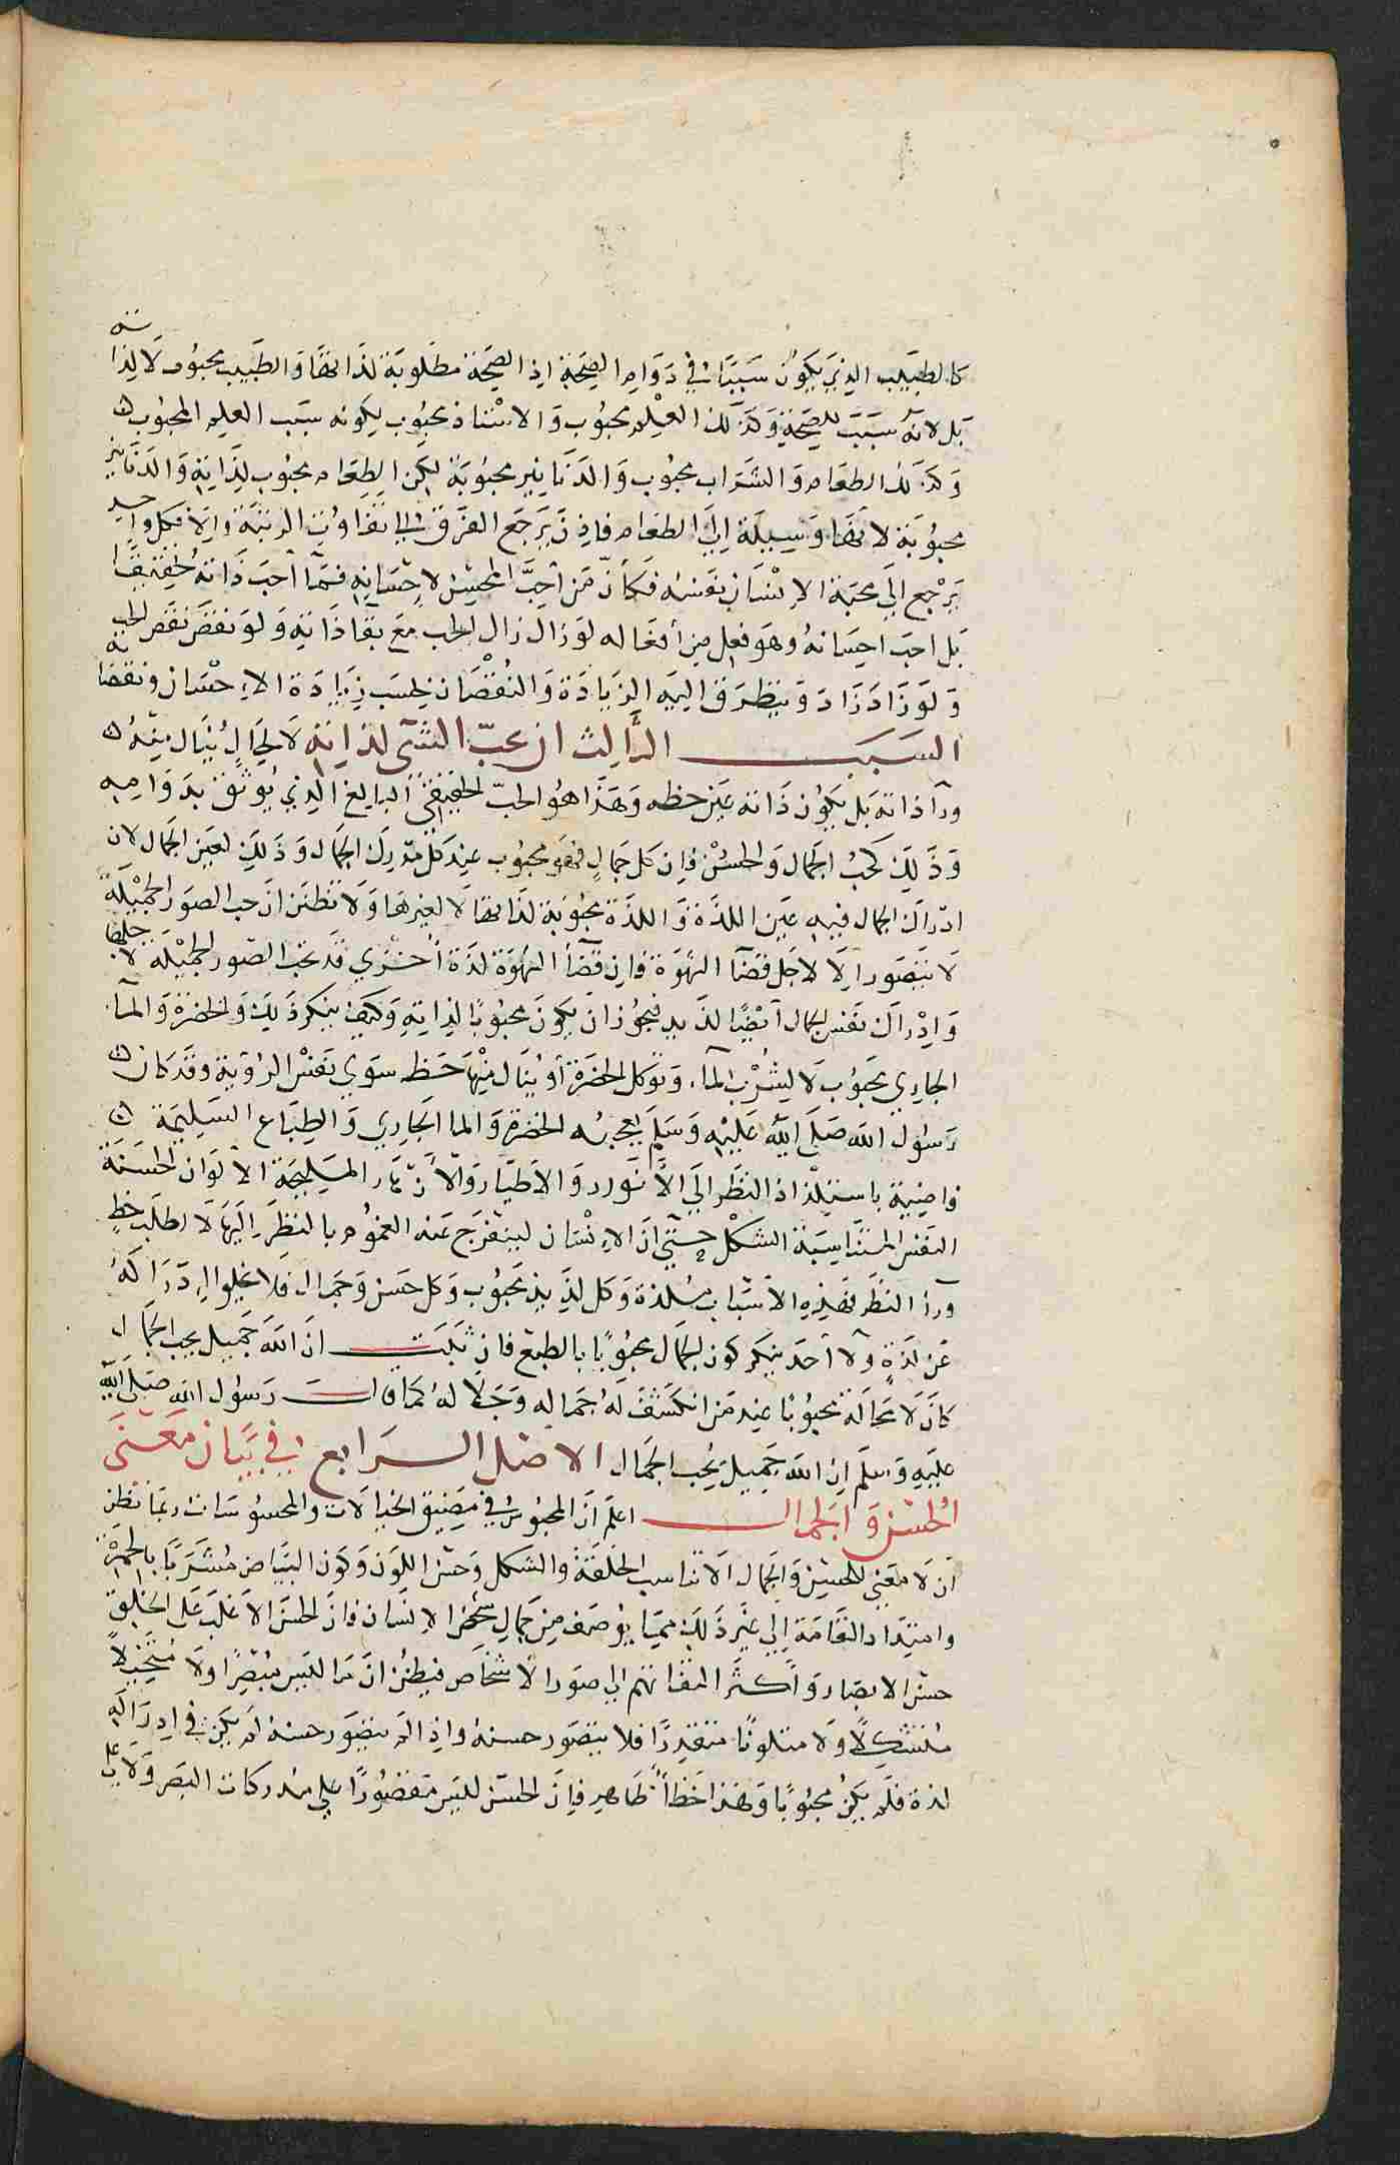 كالطبيب الذي يكون سببا في دوام الصحة اذ الصحة مطلوبة لذاتها والطبيب محبوب لا لذاته
بل لانه سبب للصحة وكذلك العلم محبوب والاستاذ محبوب لكونه سبب العلم المحبوب
وكذلك الطعام والشراب محبوب والدنانير محبوبة لكن الطعام محبوب لذاته والدنانير
محبوبة لانها وسيلة الى الطعام فاذن يرجع الفرق الى تفاوت الرتبة والا فكل واحد
يرجع الى محبة الانسان نفسه فكان من احب المحسن لاحسانه فما احب ذاته تحقيقا
بل احب احسانه وهو فعل من أفعاله لو زال زال الحب مع بقا ذاته ولو نقص نقص الحب
ولو زاد زاد وينظرق اليه الزيادة والنقصان بحسب زيادة الاحسان ونقصانه
السبب الثالث ان يحب الشي لذاته لا لحال ينال منه
ورآ ذاته بل يكون ذاته عين حظه وهذا هو الحب الحقيقي البالغ الذي يوثق بدوامه
وذلك كحب الجمال والحسن فان كل جمال فهو محبوب عند كل مدرك الجمال وذلك لعين الجمال لان
ادراك الجمال فيه عين اللذة واللذة محبوبة لذاتها لا لغيرها ولا تظنن ان حب الصور الجميلة
لا يتصور الا لاجل قضآ الشهوة فان قضآ الشهوة لذة أخري قد تحب الصور الجميلة لاجلها
وادراك نفس الجمال أيضا لذيد فيجوز ان يكون محبوبا لذاته وكيف ينكر ذلك والخضرة والمآ
الجاري محبوب لا ليشرب المآ. وتوكل الخضرة أو ينال منها حظ سوي نفس الرؤية وقد كان
رسول الله صلى الله عليه وسلم يعجبه الخضرة والما الجاري والطباع السليمة
قاضية باستلذاذ النظر الي الأنوار والاطيار والأزهار المليحة الالوان الحسنة
النفس المتناسبة الشكل حتي ان الانسان لينفرج عنه الغموم بالنظر اليها لا لطلب حظ
ورآ النظر فهذه الاسباب ملذة وكل لذيذ محبوب وكل حسن وجمال فلا يخلوا ادراكه
عن لذة ولا أحد ينكر كون الجمال محبوبا بالطبع فان ثبت ان الله جميل يحب الجمال
كان لا محالة محبوبا عند من انكشف له جماله وجلاله كما قال رسول الله صلى الله
عليه وسلم ان الله جميل يحب الجمال الاصل الرابع في بيان معنى
الحسن والجمال اعلم ان المحبوس في مضيق الخيالات والمحسوسات ربما نظن
ان لا معني للحسن والجمال الا تناسب الخلقة والشكل وحسن اللون وكون البياض مشربا بالحمرة
وامتداد القامة الي غير ذلك مما يوصف من جمال شخص الانسان فان الحسن الاغلب على الخلق
حسن الابصار وأكثر التفاتهم الي صور الاشخاص فيظن ان ما ليس مبصرا ولا متخيلا
متشكلا ولا متلونا متقدرا فلا يتصور حسنه واذا لم يتصور حسنه لم يكن في ادراكه
لذة فلم يكن محبوبا وهذا خطأ ظاهر فان الحسن ليس مقصورا علي مدركات البصر ولا على